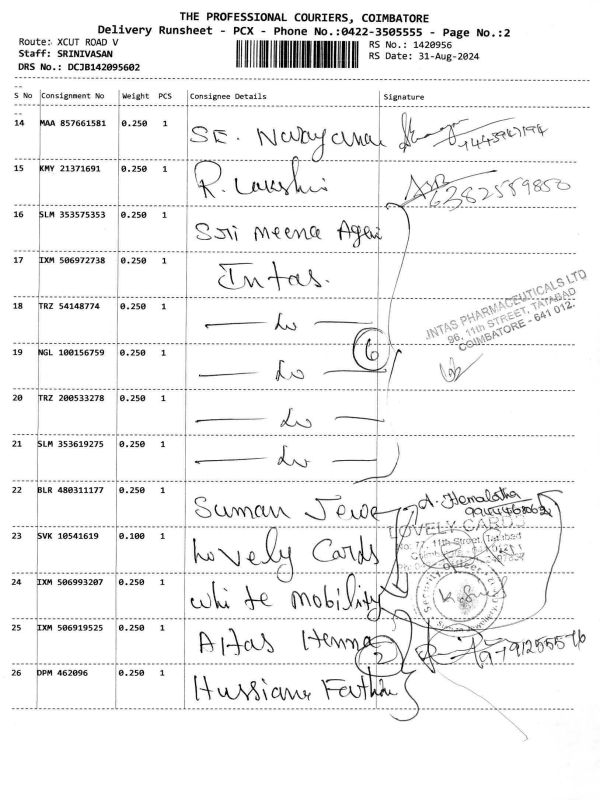 THE PROFESSIONAL COURIERS, COIMBATORE
Delivery Runsheet - PCX - Phone No.:0422-3505555 - Page No.:2
Route: XCUT ROAD V
RS No.: 1420956
Staff: SRINIVASAN
RS Date: 31-Aug-2024
DRS No.: DCJB142095602
S No Consignment No Weight PCS Consignee Details Signature
14 MAA 857661581 0.250 1 SE. Narayanan
15 KMY 21371691 0.250 1 R. Lakshmi 6382559850
16 SLM 353575353 0.250 1 Sri Meena Agen
17 IXM 506972738 0.250 1 Intas.
INTAS PHARMACEUTICALS LTD
96, 11th STREET, TATABAD
COIMBATORE - 641 012.
18 TRZ 54148774 0.250 1
6
19 NGL 100156759 0.250 1
20 TRZ 200533278 0.250 1
21 SLM 353619275 0.250 1
22 BLR 480311177 0.250 1 Suman Jewe A. Hemalatha
LOVELY CARDS
No: 77, 11th Street, Tatabad
23 SVK 10541619 0.100 1 Lovely Cards
24 IXM 506993207 0.250 1 White mobility
25 IXM 506919525 0.250 1 Altas Henna
2
9791255576
26 DPM 462096 0.250 1